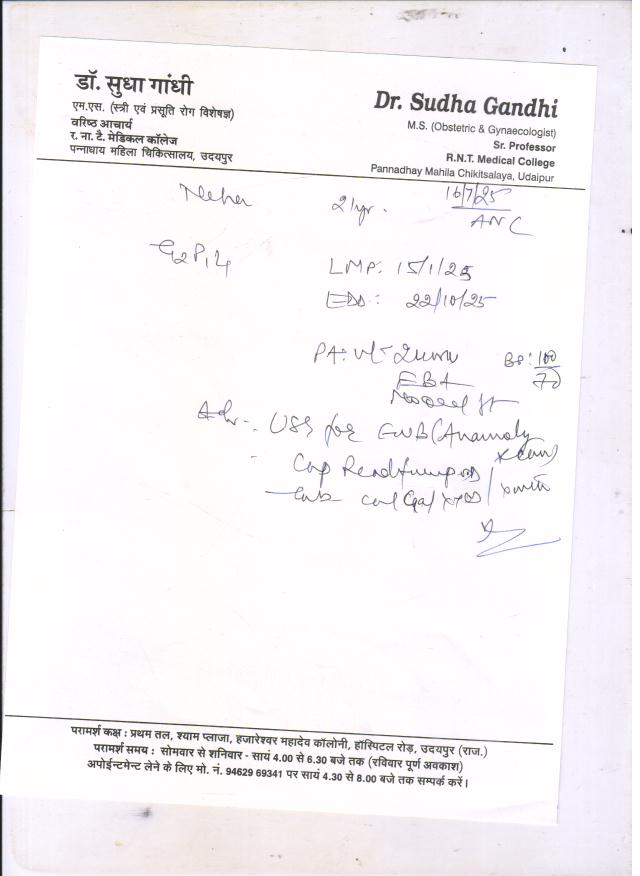 डॉ. सुधा गांधी
एम.एस. (स्त्री एवं प्रसूति रोग विशेषज्ञ)
वरिष्ठ आचार्य
र. ना. टै. मेडिकल कॉलेज
पन्नाधाय महिला चिकित्सालय, उदयपुर
Dr. Sudha Gandhi
M.S. (Obstetric & Gynaecologist)
Sr. Professor
R.N.T. Medical College
Pannadhay Mahila Chikitsalaya, Udaipur
21yr. 16/7/25
ANC
LMP: 15/1/25
EDD: 22/10/25
PA: BP: 100/70
Adv: USG for (Anamoly
परामर्श कक्ष : प्रथम तल, श्याम प्लाजा, हजारेश्वर महादेव कॉलोनी, हॉस्पिटल रोड़, उदयपुर (राज.)
परामर्श समय : सोमवार से शनिवार - सायं 4.00 से 6.30 बजे तक (रविवार पूर्ण अवकाश)
अपोईन्टमेन्ट लेने के लिए मो. नं. 94629 69341 पर सायं 4.30 से 8.00 बजे तक सम्पर्क करें।